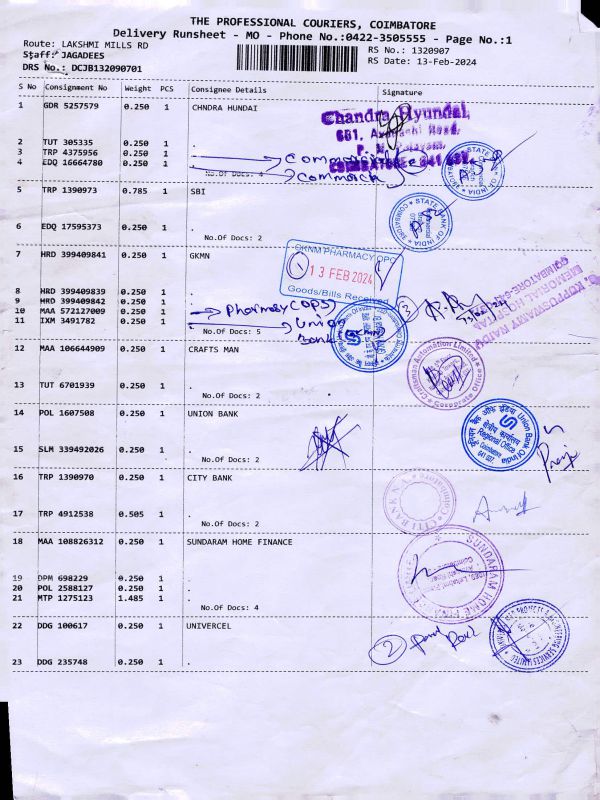 THE PROFESSIONAL COURIERS, COIMBATORE
Delivery Runsheet - MO - Phone No.:0422-3505555 - Page No.:1
Route: LAKSHMI MILLS RD RS No.: 1320907
Staff: JAGADEES RS Date: 13-Feb-2024
DRS No.: DCJB132090701
S No Consignment No Weight PCS Consignee Details Signature
1 GDR 5257579 0.250 1 CHNDRA HUNDAI
Chandra Hyundai,
2 TUT 305335 0.250 1 .
3 TRP 4375956 0.250 1 .
4 EDQ 16664780 0.250 1 .
No.Of Docs: 4
COIMBATORE - 641
STATE BANK OF INDIA
5 TRP 1390973 0.785 1 SBI
STATE BANK OF INDIA
6 EDQ 17595373 0.250 1 .
No.Of Docs: 2
7 HRD 399409841 0.250 1 GKMN
GKNM PHARMACY OPC
13 FEB 2024
Goods/Bills Received
8 HRD 399409839 0.250 1 .
9 HRD 399409842 0.250 1 .
10 MAA 572127009 0.250 1 . Pharmacy (OPS)
11 IXM 3491782 0.250 1 . Union
No.Of Docs: 5 Bank
G. KUPPUSWAMY NAIDU
MEMORIAL HOSPITAL
3
12 MAA 106644909 0.250 1 CRAFTS MAN
Craftsman Automation Limited
Corporate Office
13 TUT 6701939 0.250 1 .
No.Of Docs: 2
14 POL 1607508 0.250 1 UNION BANK
Union Bank Of India
Regional Office
15 SLM 339492026 0.250 1 .
No.Of Docs: 2
16 TRP 1390970 0.250 1 CITY BANK
CITI BANK N.A.
17 TRP 4912538 0.505 1 .
No.Of Docs: 2
18 MAA 108826312 0.250 1 SUNDARAM HOME FINANCE
SUNDARAM HOME FINANCE
19 DPM 698229 0.250 1 .
20 POL 2588127 0.250 1 .
21 MTP 1275123 1.485 1 .
No.Of Docs: 4
22 DDG 100617 0.250 1 UNIVERCEL
2
23 DDG 235748 0.250 1 .